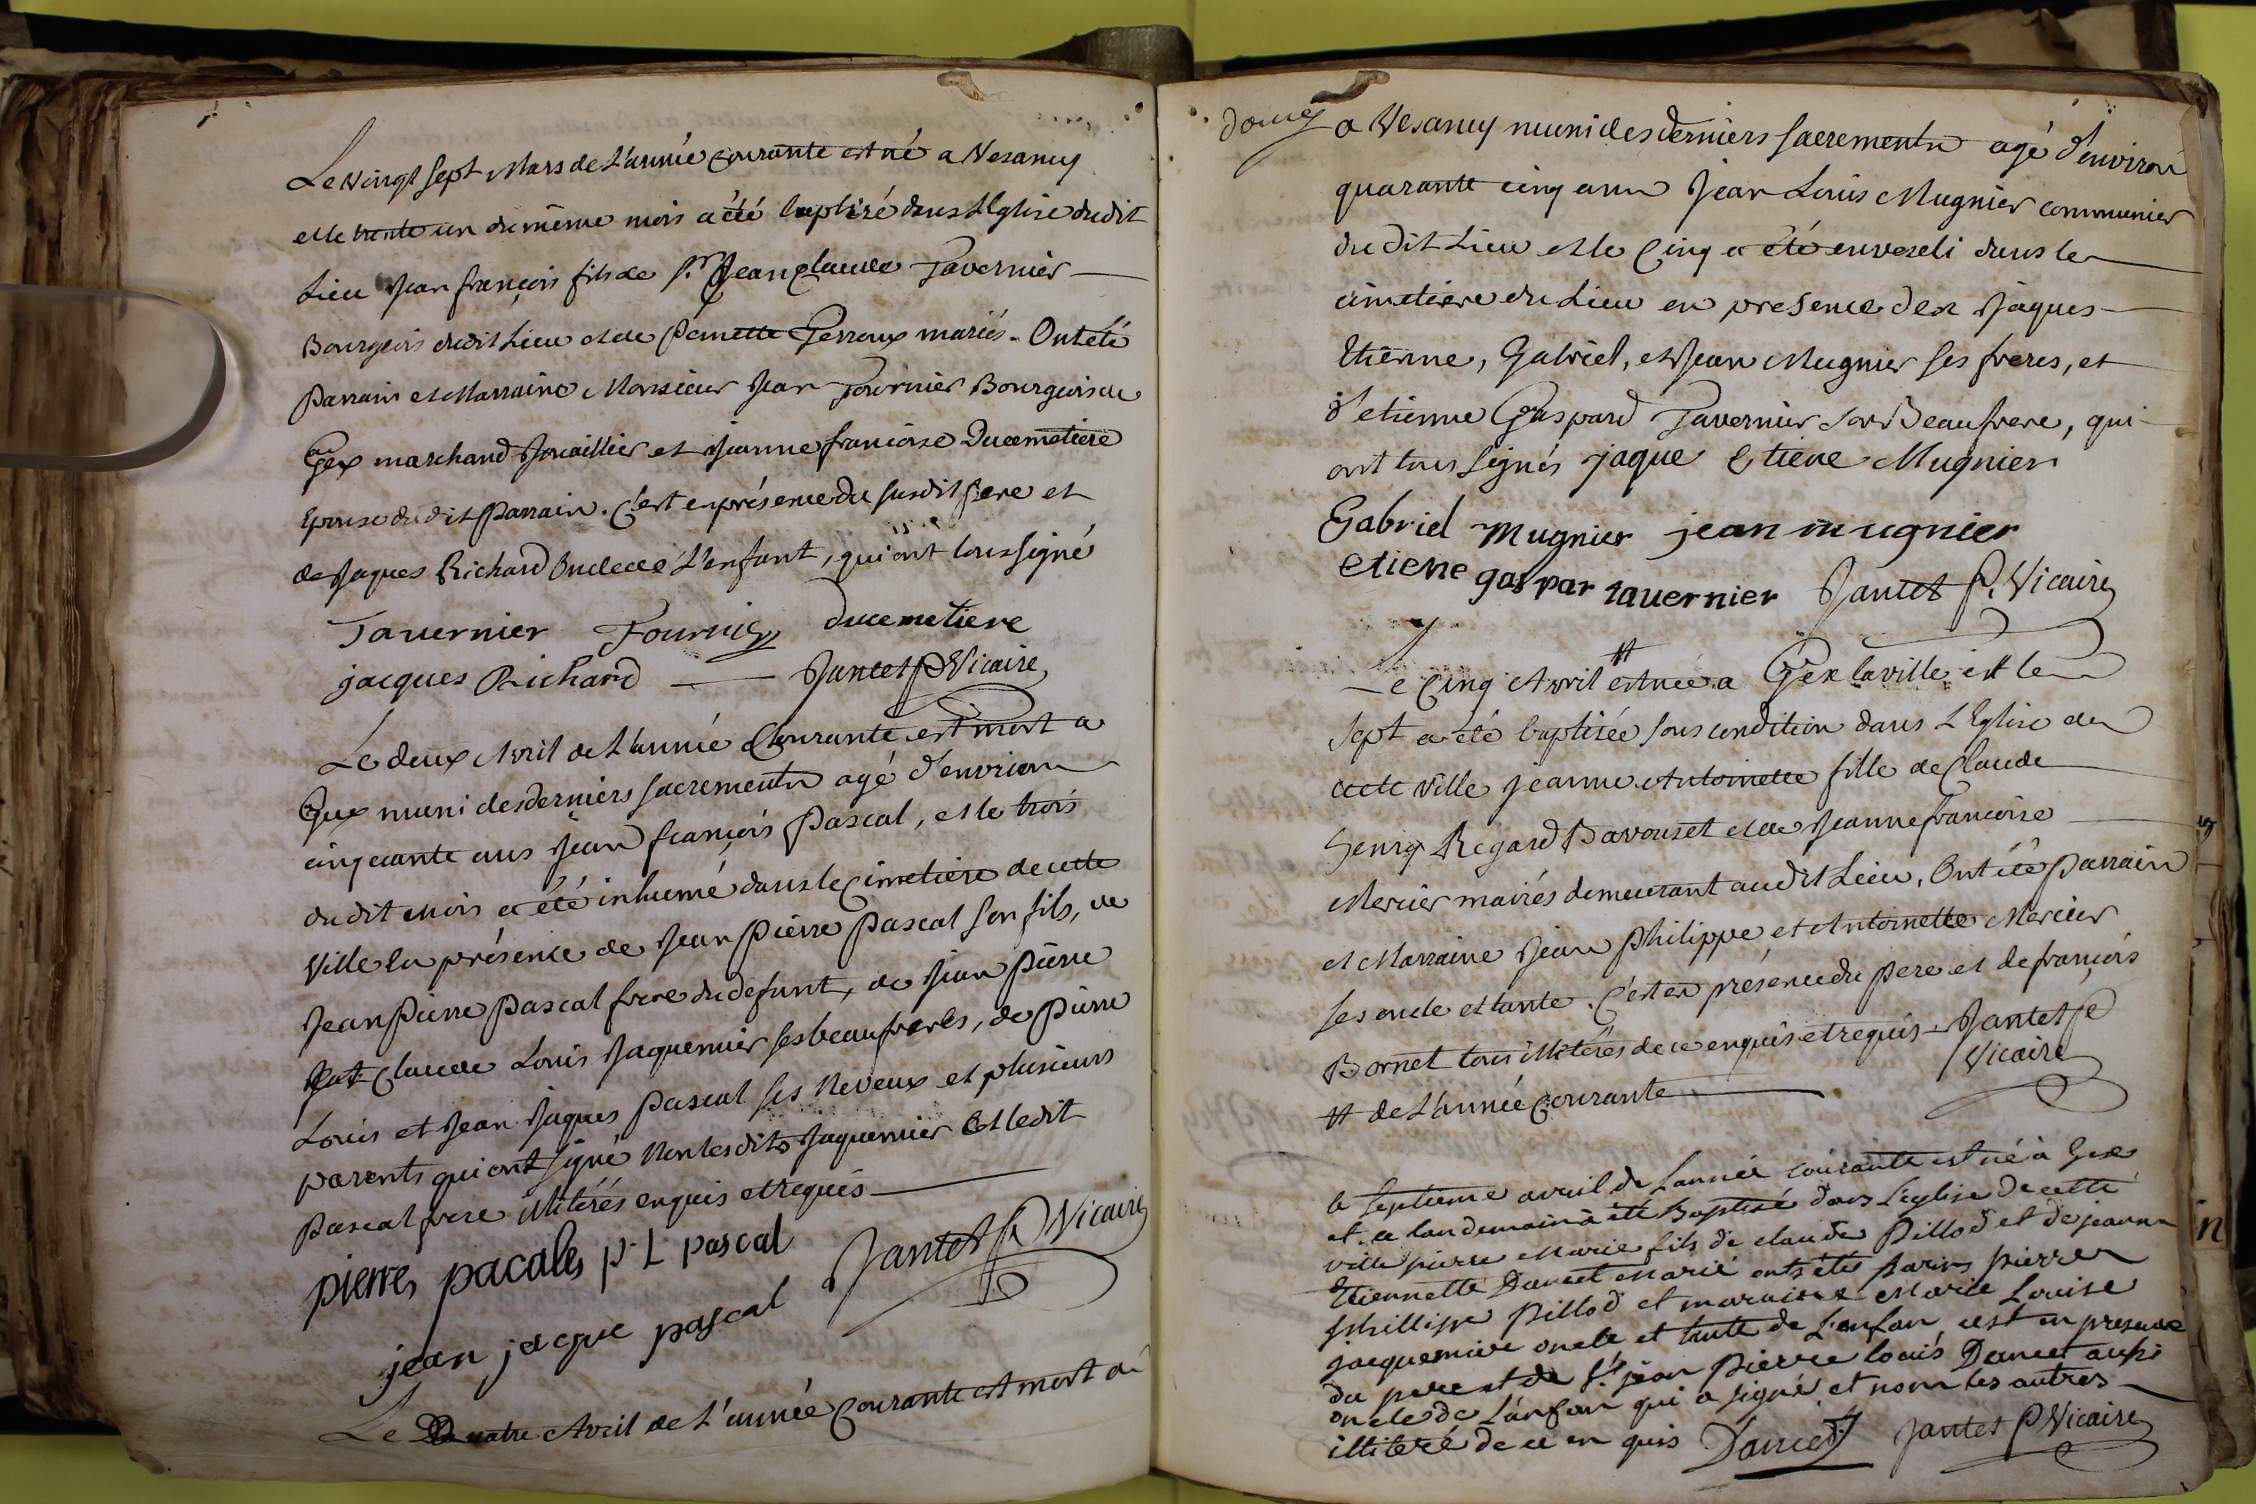 Le vingt sept Mars de L'année Courante est né a Vesancy
et le trente un du même mois a été baptisé dans L'Eglise dudit
Lieu Jean françois fils de Sr. Jean Claude Tavernier
Bourgeois dudit Lieu et de Pernette Perroux mariés. Ont été
Parrain et Marraine Monsieur Jean Fournier Bourgeois de
Gex marchand Jouaillier et Jeanne francoise Ducemetiere
Epouse dudit Parrain. C'est en présence du susdit Pere et
de Jaques Richard Oncle de L'enfant, qui ont tous signé
Tavernier Fournier Ducemetiere
jacques Richard Jantet P. Vicaire
Le deux Avril de L'année Courante est mort a
Gex muni des derniers sacrements agé d'environ
cinquante ans Jean françois Pascal, et le trois
dudit mois a été inhumé dans le Cimetiere de cette
Ville en présence de Jean Pierre Pascal son fils, de
Jean Pierre Pascal frere du defunt, de Jean Pierre
et Claude Louis Jaquemier ses beaufreres, de Pierre
Louis et Jean Jaques Pascal ses Neveux et plusieurs
parents qui ont signé Non lesdits Jaquemier Et ledit
Pascal frere illitérés enquis et requis
pierres pacales p. L pascal
jean jacque pascal Jantet P. Vicaire
Le Quatre Avril de L'année Courante est mort a
Doucy a Vesancy muni des derniers sacrements agé d'environ
quarante cinq ans Jean Louis Mugnier communier
du dit Lieu et le Cinq a été enveseli dans le
cimetiere du Lieu en presence des Jaques
Etienne, Gabriel, et Jean Mugnier ses freres, et
d'etienne Gaspard Tavernier son Beaufrere, qui
ont tous signés jaque Etiene Mugnier
Gabriel mugnier jean mugnier
etiene gaspar tauernier Jantet P. Vicaire
Le Cinq Avril # est née a Gex la ville et le
sept a été baptisée sous condition dans L'Eglise de
cette Ville Jeanne Antoinette fille de Claude
Henry Regard Bavouzet et de Jeanne francoise
Mercier mairés demeurant audit Lieu. Ont été Parrain
et Marraine Jean Philippe et Antoinette Mercier
ses oncle et tante. C'est en présence du Pere et de françois
Bornet tous illitérés de ce enquis et requis Jantet P.
Vicaire
# de L'année Courante
le septieme avril de Lannée courante est né à Gex
et le landemain à été Baptisé dans L'eglise de cette
ville pierre Marie fils de claude Pillod et de jeanne
Etiennette Dancet Marié onts étés parins pierre
phillippe Pillod et maraine Marie Louise
jacquemier oncle et tante de L'enfan cest en presence
du pere et de Sr. jean Pierre louis Dancet aussi
oncle de L'anfan qui a signé et nom les autres
illiteré de ce en quis Dancet Jantet P. Vicaire